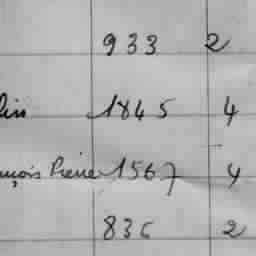 933 2
lin 1845 4
nçois Pierre 1567 4
836 2